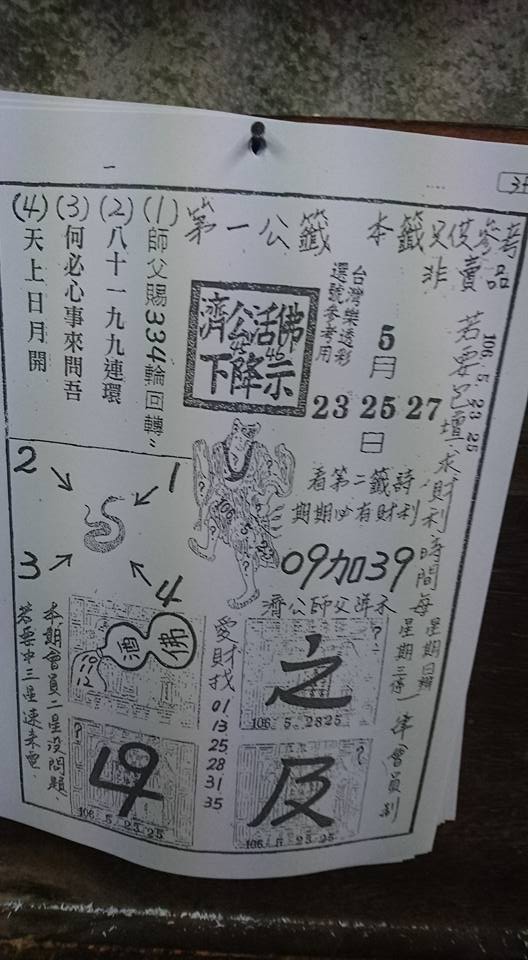 第一公籤
本籤只供參考
非賣品
(1)師父賜334輪回轉
(2)八十一九九連環
(3)何必心事來問吾
(4)天上日月開
濟公活佛
下降示
台灣樂透彩
選號參考用
5月
23 25 27
日
106 5 23 25
看第二籤詩
期期必有財利
09加39
濟公師父降示
2
1
3
4
酒
佛
19
12
愛財找
01
13
25
28
31
35
之
106. 5. 2325
?
?
及
106. 5. 25.25
?
106. 5. 23.25
本期會員二星沒問題
若要中三星速來電
若要巳壇求財利時間每
星期日辦
星期三得
一律會員制